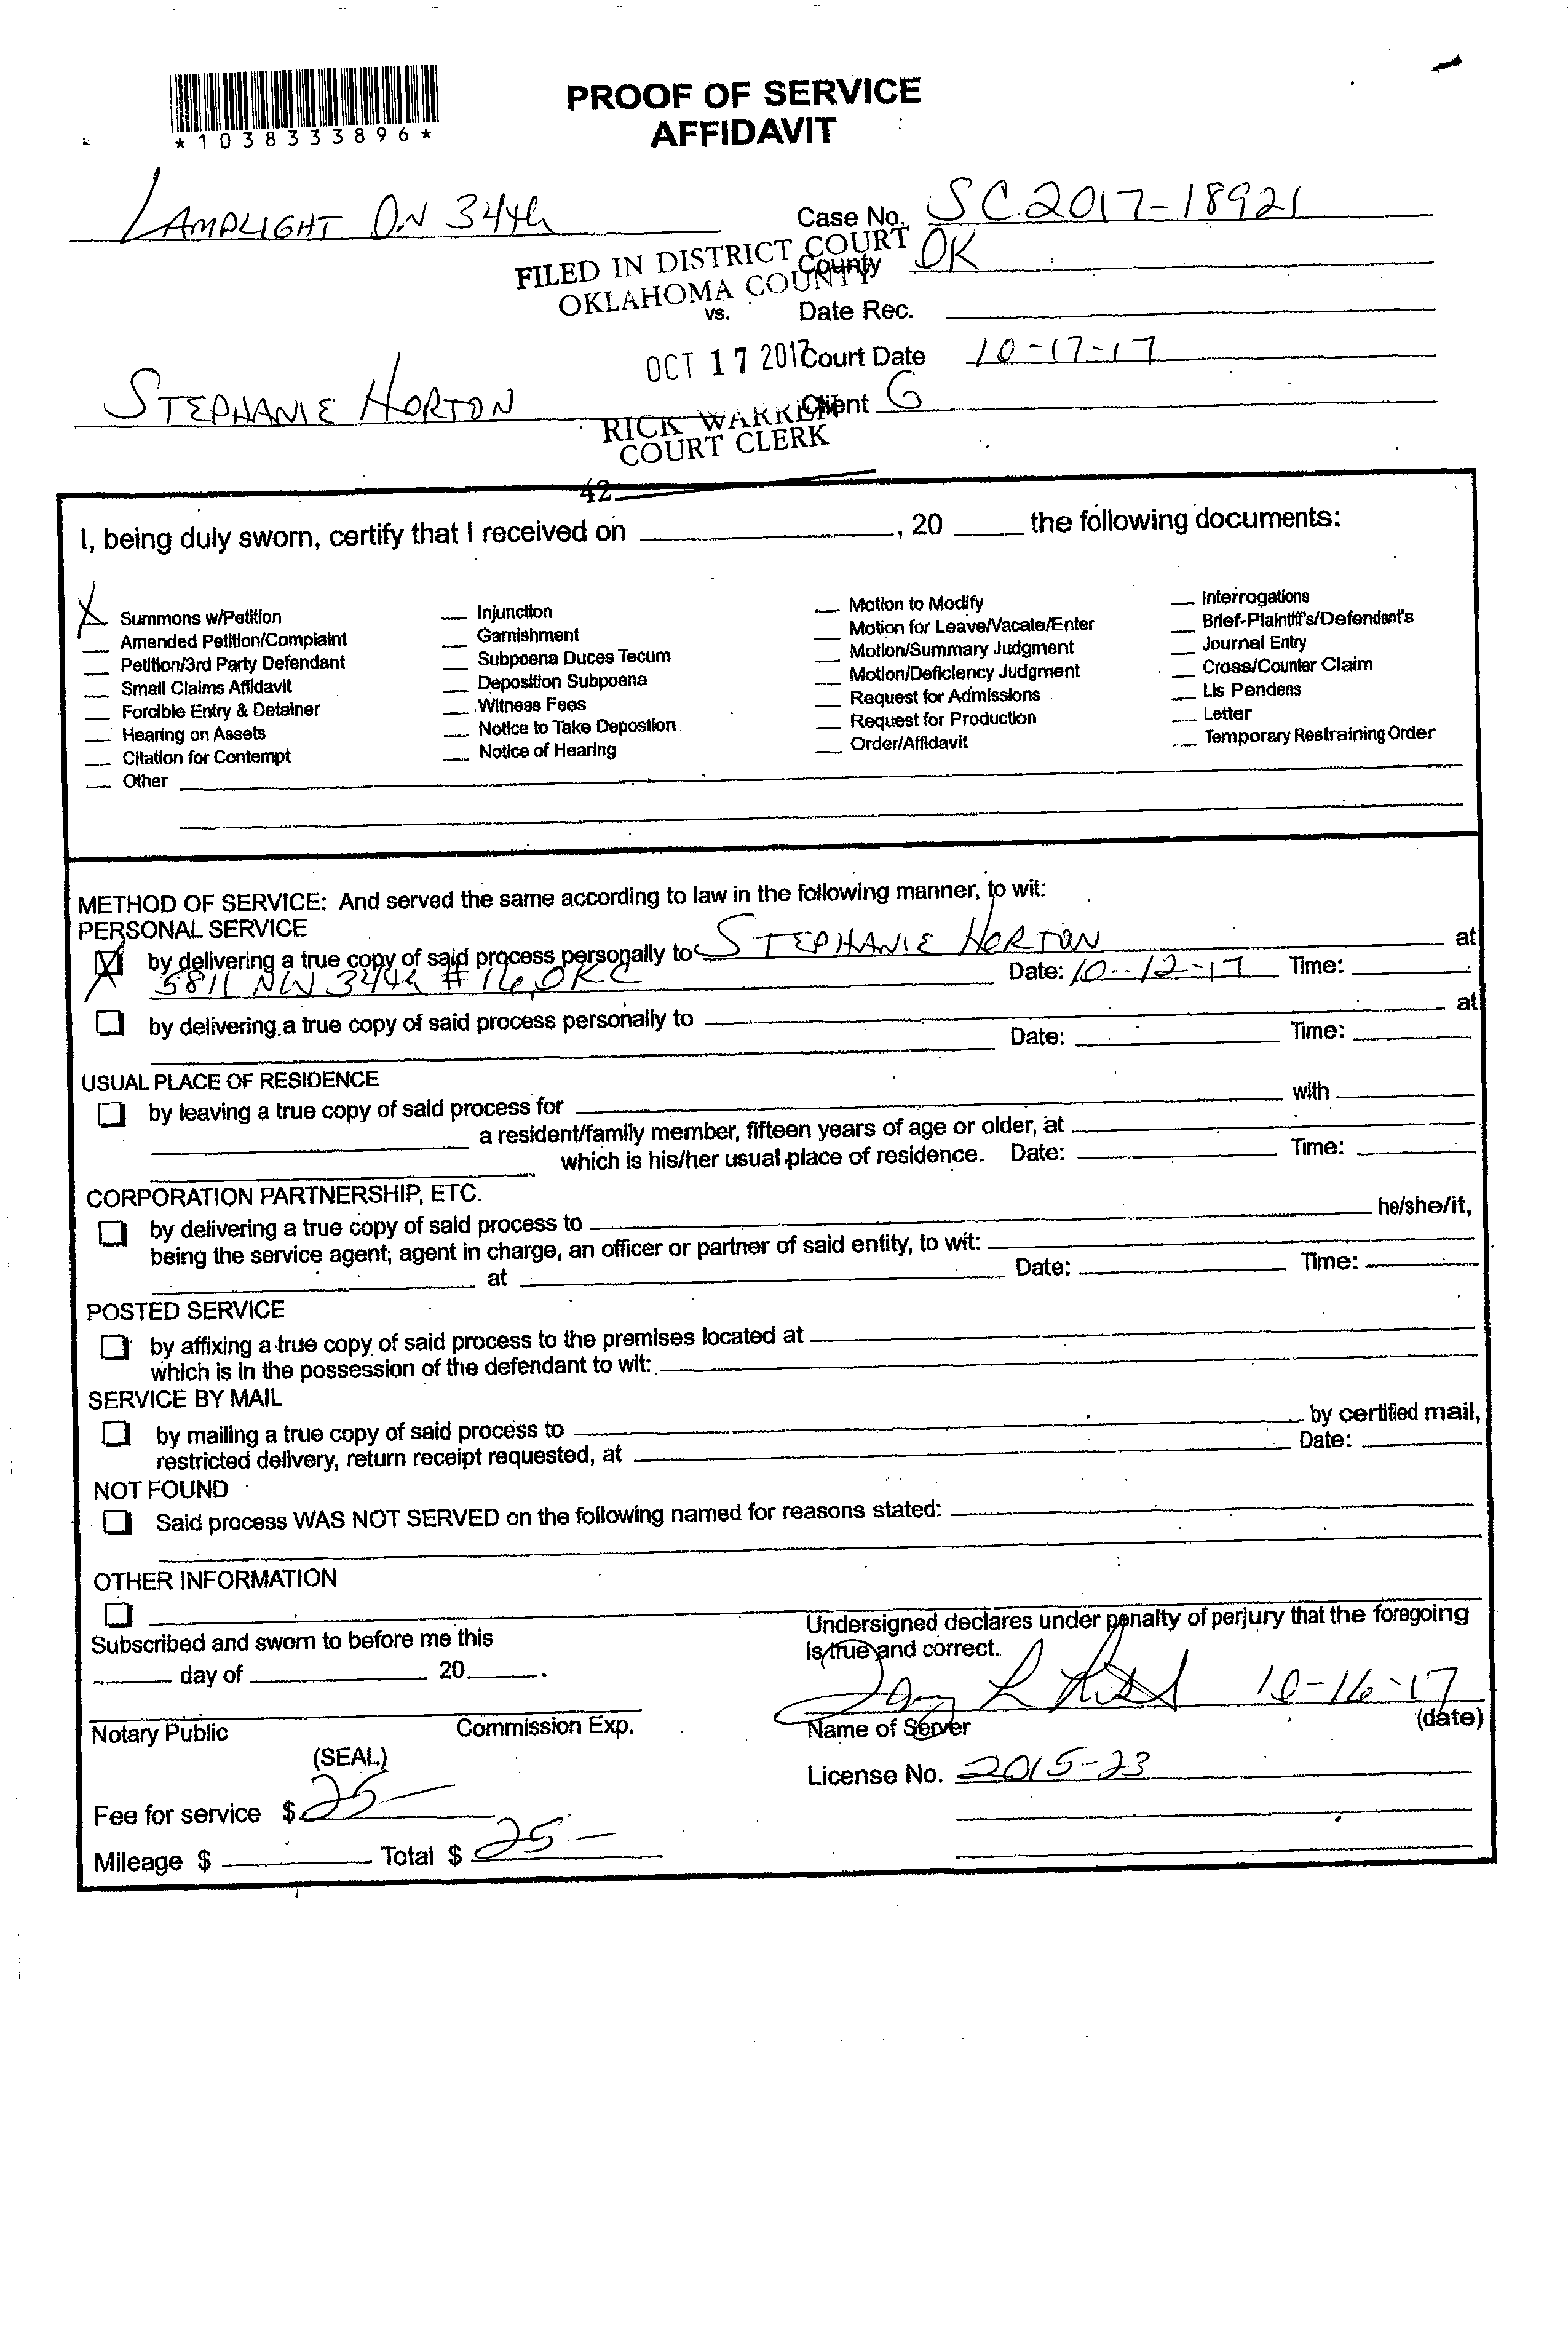 PROOF OF SERVICE
AFFIDAVIT
*1038333896*
LAMPLIGHT ON 34th
Case No. SC 2017-18921
FILED IN DISTRICT COURT
OKLAHOMA COUNTY
County OK
vs.
Date Rec.
OCT 17 2017
Court Date 10-17-17
STEPHANIE HORTON
Client G
RICK WARREN
COURT CLERK
42
I, being duly sworn, certify that I received on ____, 20 ____ the following documents:
X Summons w/Petition
Amended Petition/Complaint
Petition/3rd Party Defendant
Small Claims Affidavit
Forcible Entry & Detainer
Hearing on Assets
Citation for Contempt
Other
Injunction
Garnishment
Subpoena Duces Tecum
Deposition Subpoena
Witness Fees
Notice to Take Depostion
Notice of Hearing
Motion to Modify
Motion for Leave/Vacate/Enter
Motion/Summary Judgment
Motion/Deficiency Judgment
Request for Admissions
Request for Production
Order/Affidavit
Interrogations
Brief-Plaintiff's/Defendant's
Journal Entry
Cross/Counter Claim
Lis Pendens
Letter
Temporary Restraining Order
METHOD OF SERVICE: And served the same according to law in the following manner, to wit:
PERSONAL SERVICE
by delivering a true copy of said process personally to STEPHANIE HORTON at
5811 NW 34th #16, OKC Date: 10-12-17 Time:
by delivering a true copy of said process personally to ____ at
Date: ____ Time:
USUAL PLACE OF RESIDENCE
by leaving a true copy of said process for ____ with
a resident/family member, fifteen years of age or older, at
which is his/her usual place of residence. Date: ____ Time:
CORPORATION PARTNERSHIP, ETC.
by delivering a true copy of said process to ____ he/she/it,
being the service agent; agent in charge, an officer or partner of said entity, to wit:
at ____ Date: ____ Time:
POSTED SERVICE
by affixing a true copy of said process to the premises located at
which is in the possession of the defendant to wit:
SERVICE BY MAIL
by mailing a true copy of said process to ____ by certified mail,
restricted delivery, return receipt requested, at ____ Date:
NOT FOUND
Said process WAS NOT SERVED on the following named for reasons stated:
OTHER INFORMATION
Subscribed and sworn to before me this
____ day of ____ 20____.
Notary Public Commission Exp.
(SEAL)
Fee for service $ 25-
Mileage $ ____ Total $ 25-
Undersigned declares under penalty of perjury that the foregoing
is true and correct.
10-16-17
Name of Server (date)
License No. 2015-23